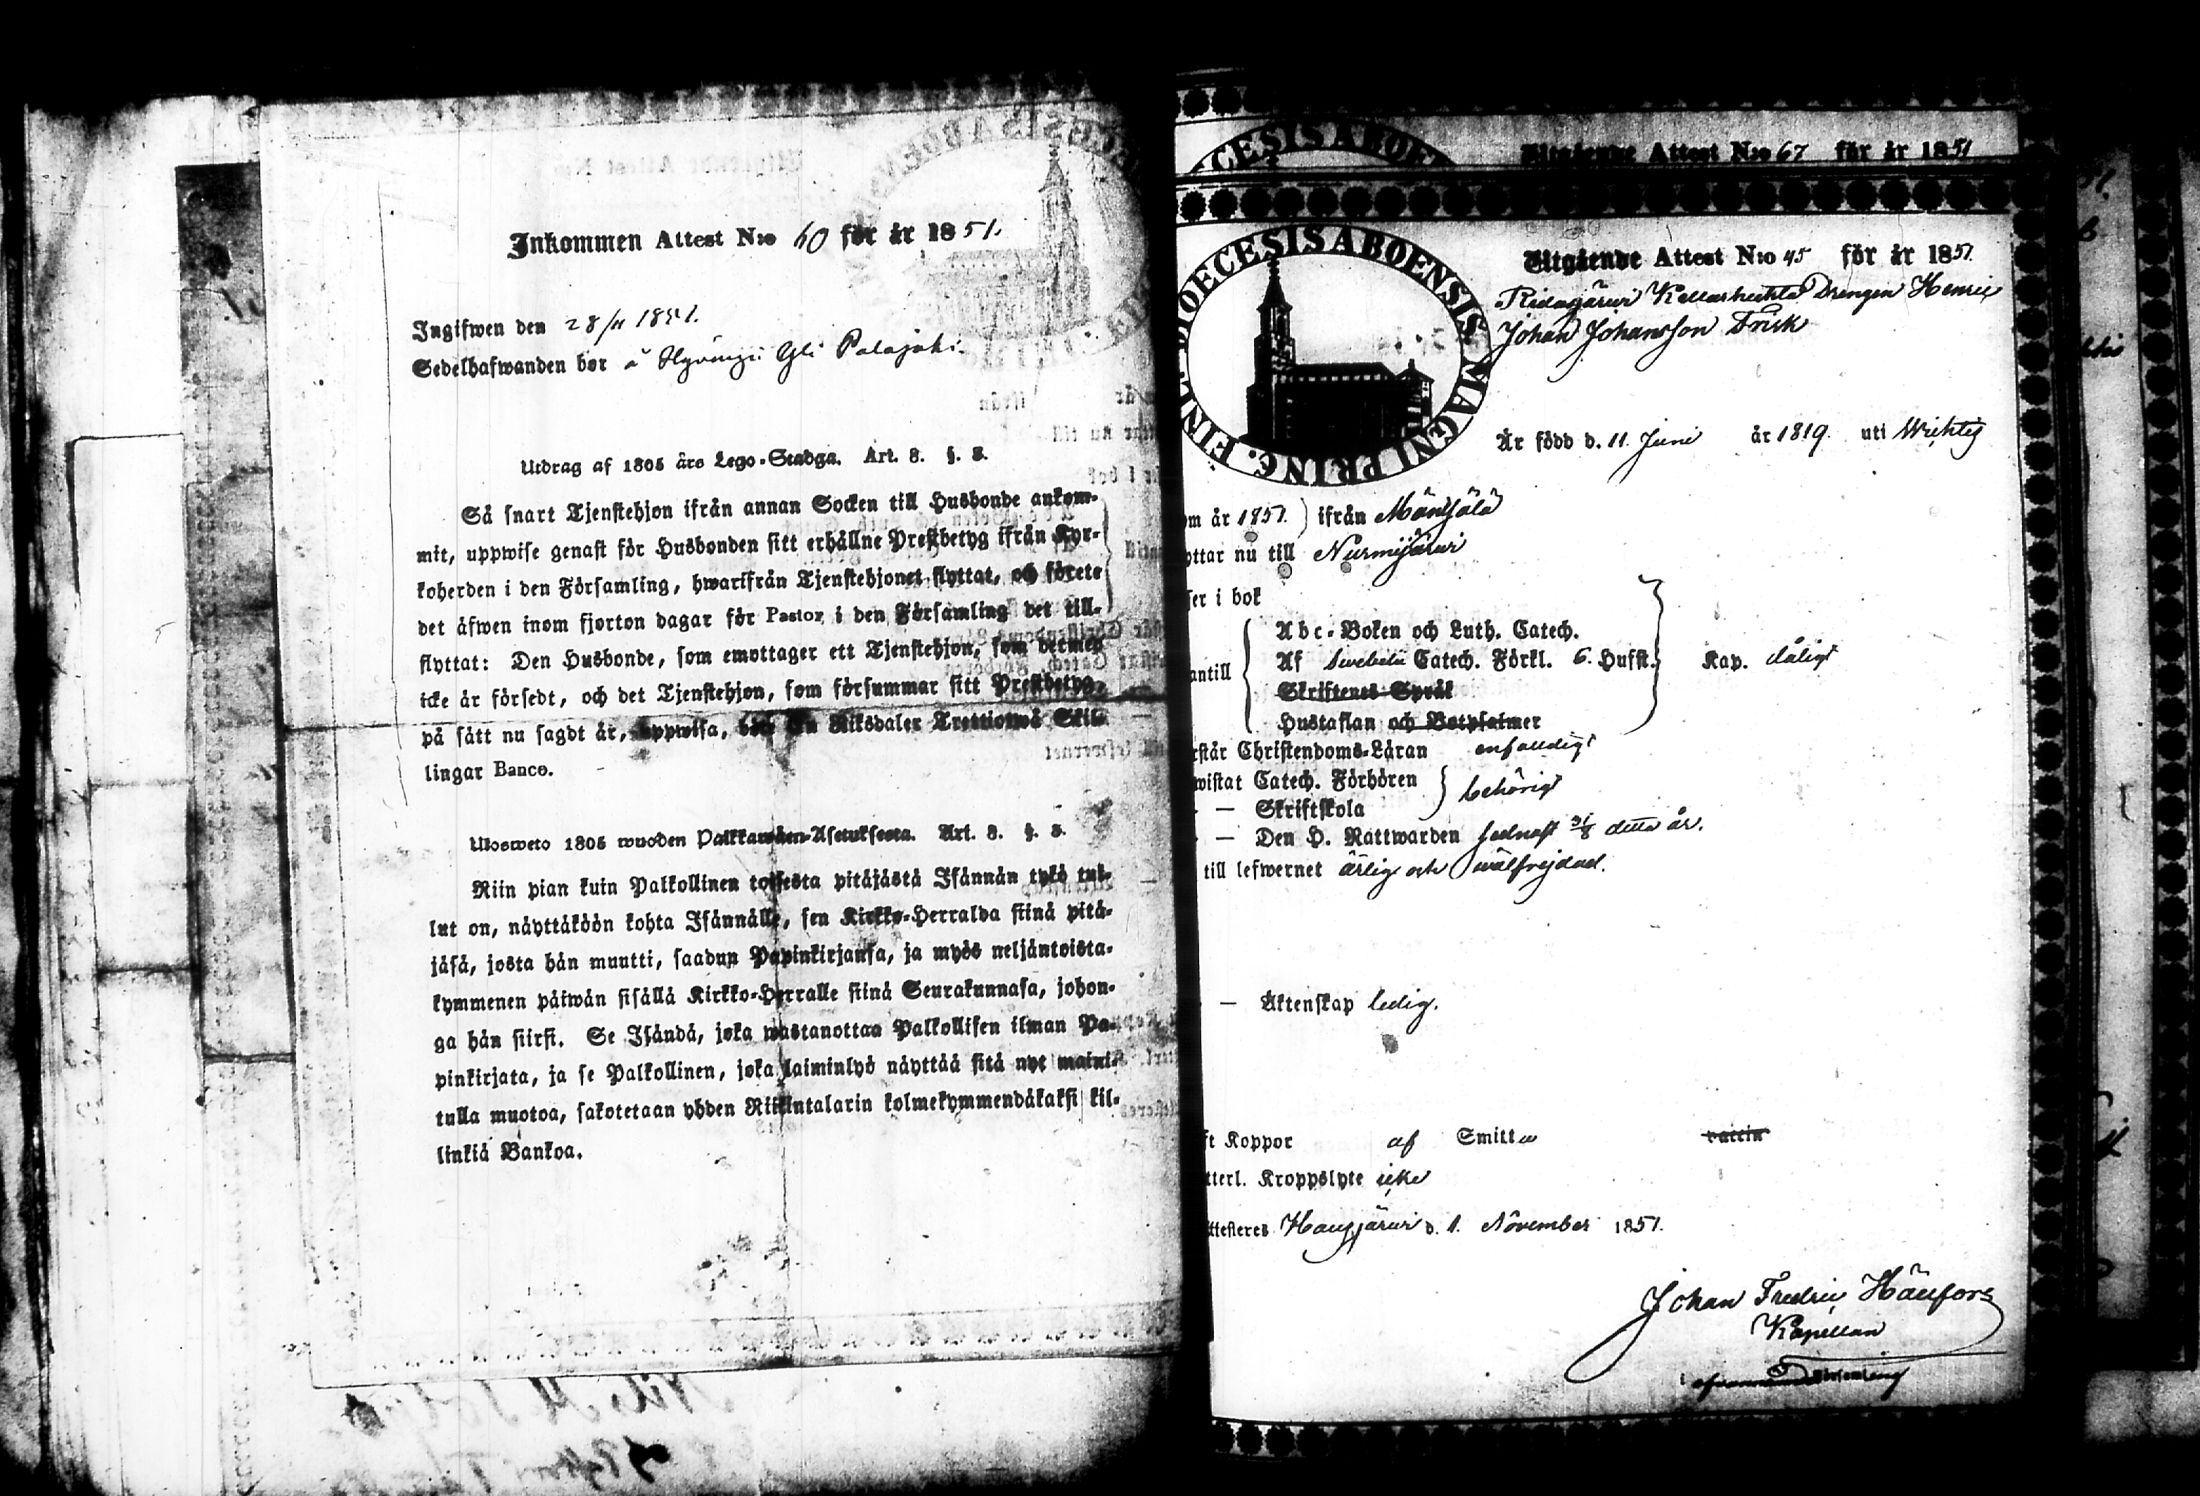 Inkommen Attest N:o 60 för år 1851.
Ingifwen den 28/11 1851.
Sedelhafwanden bor å Hyvinge Yli Palojoki.
Utdrag af 1805 års Lego-Stadga. Art. 8. §. 3.
Så snart Tjenstehjon ifrån annan Socken till Husbonde ankom-
mit, uppwise genast för Husbonden sitt erhållne Prestbetyg ifrån Kyr-
koherden i den Församling, hwarifrån Tjenstehjonet flyttat, och förete
det äfwen inom fjorton dagar för Pastor i den Församling det till-
flyttat: Den Husbonde, som emottager ett Tjenstehjon, som dermed
icke är försedt, och det Tjenstehjon, som försummar sitt Prestbetyg,
på sätt nu sagdt är, uppwisa, böte En Riksdaler Trettiotwå Skil-
lingar Banco.
Ulosweto 1805 wuoden Palkkawäen-Asetuksesta. Art. 8. §. 3.
Niin pian kuin Palkollinen toisesta pitäjästä Isännän tykö tul-
lut on, näyttäköön kohta Isännälle, sen Kirkko-Herralda siinä pitä-
jäsä, josta hän muutti, saadun Papinkirjansa, ja myös neljäntoista-
kymmenen päiwän sisällä Kirkko-Herralle siinä Seurakunnasa, johon-
ga hän siirsi. Se Isändä, joka wastanottaa Palkollisen ilman Pa-
pinkirjata, ja se Palkollinen, joka laiminlyö näyttää sitä nyt maini-
tulla muotoa, sakotetaan yhden Riikintalarin kolmekymmendäkaksi kil-
linkiä Bankoa.
Utgående Attest N:o 67 för år 1851
DIOECESIS ABOENSIS MAGNI PRINC. FINL.
Utgående Attest N:o 45 för år 1851
Ridasjärvi Drengen Henric
Johan Johansson Frisk
Är född d. 11 Juni år 1819. uti Wichtis
om år 1851.) ifrån Mäntsälä
yttar nu till Nurmijärvi
ser i bok
antill
Abc-Boken och Luth. Catech.
Af Svebelii Catech. Förkl. 6. Hufst. Kap. dåligt
Skriftenes Språk
Hustaflan och Botpsalmer
rstår Christendoms-Läran enfaldigt
wistat Catech. Förhören
— Skriftskola behörigt
— Den H. Nattwarden sednast 31/8 detta år.
till lefwernet ärlig och välfrejdad.
— Äktenskap ledig.
ft Koppor af Smitta vaccin
tterl. Kroppslyte icke
ttesteres Hausjärvi d. 1. November 1851.
Johan Fredric Känfors
Kapellan
i Församling